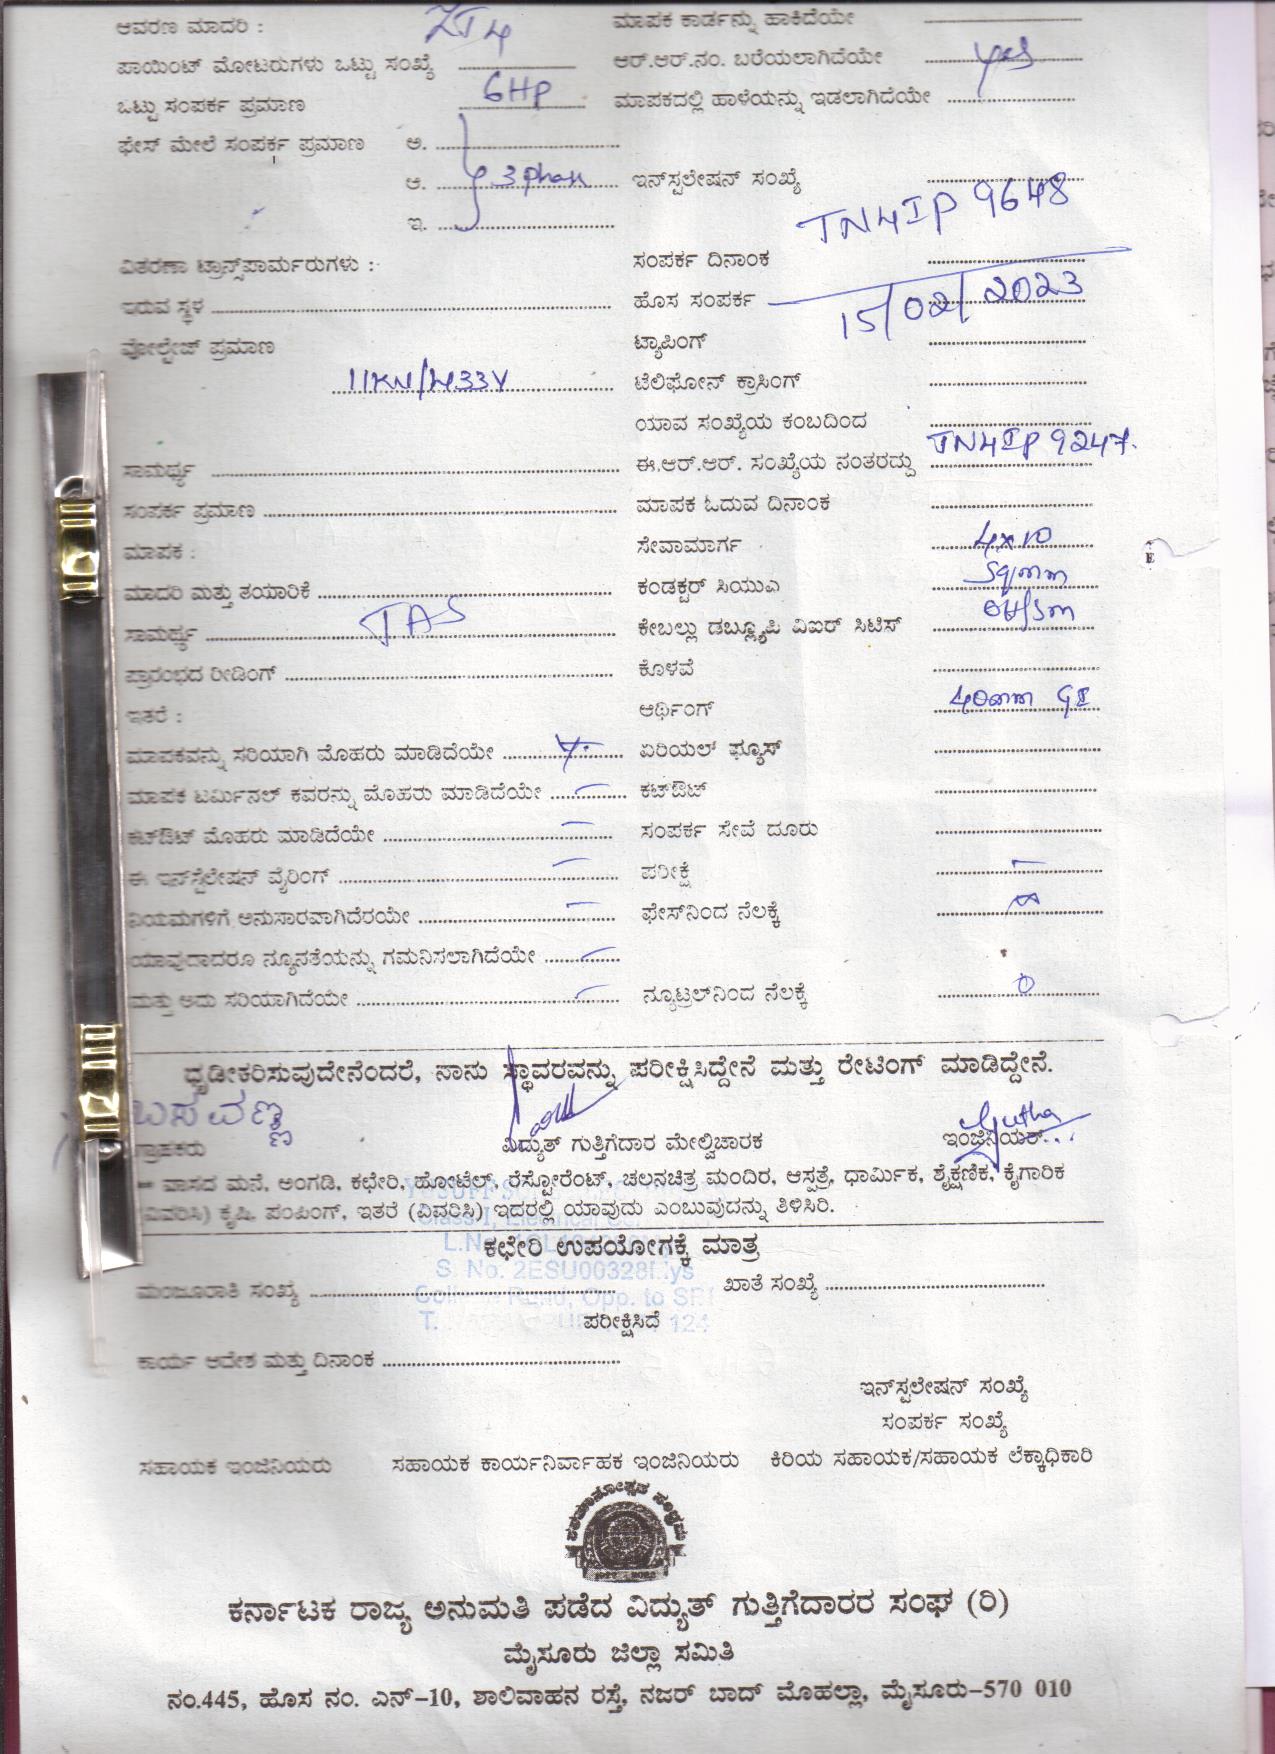 ಆವರಣ ಮಾದರಿ : ಮಾಪಕ ಕಾರ್ಡನ್ನು ಹಾಕಿದೆಯೇ
ಪಾಯಿಂಟ್ ಮೋಟರುಗಳು ಒಟ್ಟು ಸಂಖ್ಯೆ ಆರ್.ಆರ್.ನಂ. ಬರೆಯಲಾಗಿದೆಯೇ yes
ಒಟ್ಟು ಸಂಪರ್ಕ ಪ್ರಮಾಣ 6HP ಮಾಪಕದಲ್ಲಿ ಹಾಳೆಯನ್ನು ಇಡಲಾಗಿದೆಯೇ
ಫೇಸ್ ಮೇಲೆ ಸಂಪರ್ಕ ಪ್ರಮಾಣ ಅ.
ಆ. 3 phase ಇನ್‌ಸ್ಟಲೇಷನ್ ಸಂಖ್ಯೆ
ಇ. TN4IP 9648
ವಿತರಣಾ ಟ್ರಾನ್ಸ್‌ಪಾರ್ಮರುಗಳು : ಸಂಪರ್ಕ ದಿನಾಂಕ
ಇರುವ ಸ್ಥಳ ಹೊಸ ಸಂಪರ್ಕ 15/02/2023
ವೋಲ್ಟೇಜ್ ಪ್ರಮಾಣ ಟ್ಯಾಪಿಂಗ್
11KV/433V ಟೆಲಿಫೋನ್ ಕ್ರಾಸಿಂಗ್
ಯಾವ ಸಂಖ್ಯೆಯ ಕಂಬದಿಂದ
ಸಾಮರ್ಥ್ಯ ಈ.ಆರ್.ಆರ್. ಸಂಖ್ಯೆಯ ನಂತರದ್ದು TN4IP 9247.
ಸಂಪರ್ಕ ಪ್ರಮಾಣ ಮಾಪಕ ಓದುವ ದಿನಾಂಕ
ಮಾಪಕ : ಸೇವಾಮಾರ್ಗ 4x10
ಮಾದರಿ ಮತ್ತು ತಯಾರಿಕೆ ಕಂಡಕ್ಟರ್ ಸಿಯುಎ Sqmm
ಸಾಮರ್ಥ್ಯ ಕೇಬಲ್ಲು ಡಬ್ಲ್ಯೂಪಿ ವಿಐರ್ ಸಿಟಿಸ್
ಪ್ರಾರಂಭದ ರೀಡಿಂಗ್ ಕೊಳವೆ
ಇತರೆ : ಆರ್ಥಿಂಗ್ 40mm GI
ಮಾಪಕವನ್ನು ಸರಿಯಾಗಿ ಮೊಹರು ಮಾಡಿದೆಯೇ ಏರಿಯಲ್ ಫ್ಯೂಸ್
ಮಾಪಕ ಟರ್ಮಿನಲ್ ಕವರನ್ನು ಮೊಹರು ಮಾಡಿದೆಯೇ ಕಟ್‌ಔಟ್
ಕಟ್‌ಔಟ್ ಮೊಹರು ಮಾಡಿದೆಯೇ ಸಂಪರ್ಕ ಸೇವೆ ದೂರು
ಈ ಇನ್‌ಸ್ಟಲೇಷನ್ ವೈರಿಂಗ್ ಪರೀಕ್ಷೆ
ನಿಯಮಗಳಿಗೆ ಅನುಸಾರವಾಗಿದೆರಯೇ ಫೇಸ್‌ನಿಂದ ನೆಲಕ್ಕೆ ∞
ಯಾವುದಾದರೂ ನ್ಯೂನತೆಯನ್ನು ಗಮನಿಸಲಾಗಿದೆಯೇ
ಮತ್ತು ಅದು ಸರಿಯಾಗಿದೆಯೇ ನ್ಯೂಟ್ರಲ್‌ನಿಂದ ನೆಲಕ್ಕೆ 0
ಧೃಡೀಕರಿಸುವುದೇನೆಂದರೆ, ನಾನು ಸ್ಥಾವರವನ್ನು ಪರೀಕ್ಷಿಸಿದ್ದೇನೆ ಮತ್ತು ರೇಟಿಂಗ್ ಮಾಡಿದ್ದೇನೆ.
ಬಸವಣ್ಣ
ಗ್ರಾಹಕರು ವಿದ್ಯುತ್ ಗುತ್ತಿಗೆದಾರ ಮೇಲ್ವಿಚಾರಕ ಇಂಜಿನಿಯರ್
ವಾಸದ ಮನೆ, ಅಂಗಡಿ, ಕಛೇರಿ, ಹೋಟೆಲ್, ರೆಸ್ಟೋರೆಂಟ್, ಚಲನಚಿತ್ರ ಮಂದಿರ, ಆಸ್ಪತ್ರೆ, ಧಾರ್ಮಿಕ, ಶೈಕ್ಷಣಿಕ, ಕೈಗಾರಿಕ
(ವಿವರಿಸಿ) ಕೃಷಿ, ಪಂಪಿಂಗ್, ಇತರೆ (ವಿವರಿಸಿ) ಇದರಲ್ಲಿ ಯಾವುದು ಎಂಬುವುದನ್ನು ತಿಳಿಸಿರಿ.
ಕಛೇರಿ ಉಪಯೋಗಕ್ಕೆ ಮಾತ್ರ
S. No. 2ESU00328
ಮಂಜೂರಾತಿ ಸಂಖ್ಯೆ ಖಾತೆ ಸಂಖ್ಯೆ
ಪರೀಕ್ಷಿಸಿದೆ
ಕಾರ್ಯ ಆದೇಶ ಮತ್ತು ದಿನಾಂಕ
ಇನ್‌ಸ್ಟಲೇಷನ್ ಸಂಖ್ಯೆ
ಸಂಪರ್ಕ ಸಂಖ್ಯೆ
ಸಹಾಯಕ ಇಂಜಿನಿಯರು ಸಹಾಯಕ ಕಾರ್ಯನಿರ್ವಾಹಕ ಇಂಜಿನಿಯರು ಕಿರಿಯ ಸಹಾಯಕ/ಸಹಾಯಕ ಲೆಕ್ಕಾಧಿಕಾರಿ
ಕರ್ನಾಟಕ ರಾಜ್ಯ ಅನುಮತಿ ಪಡೆದ ವಿದ್ಯುತ್ ಗುತ್ತಿಗೆದಾರರ ಸಂಘ (ರಿ)
ಮೈಸೂರು ಜಿಲ್ಲಾ ಸಮಿತಿ
ನಂ.445, ಹೊಸ ನಂ. ಎನ್-10, ಶಾಲಿವಾಹನ ರಸ್ತೆ, ನಜರ್ ಬಾದ್ ಮೊಹಲ್ಲಾ, ಮೈಸೂರು-570 010